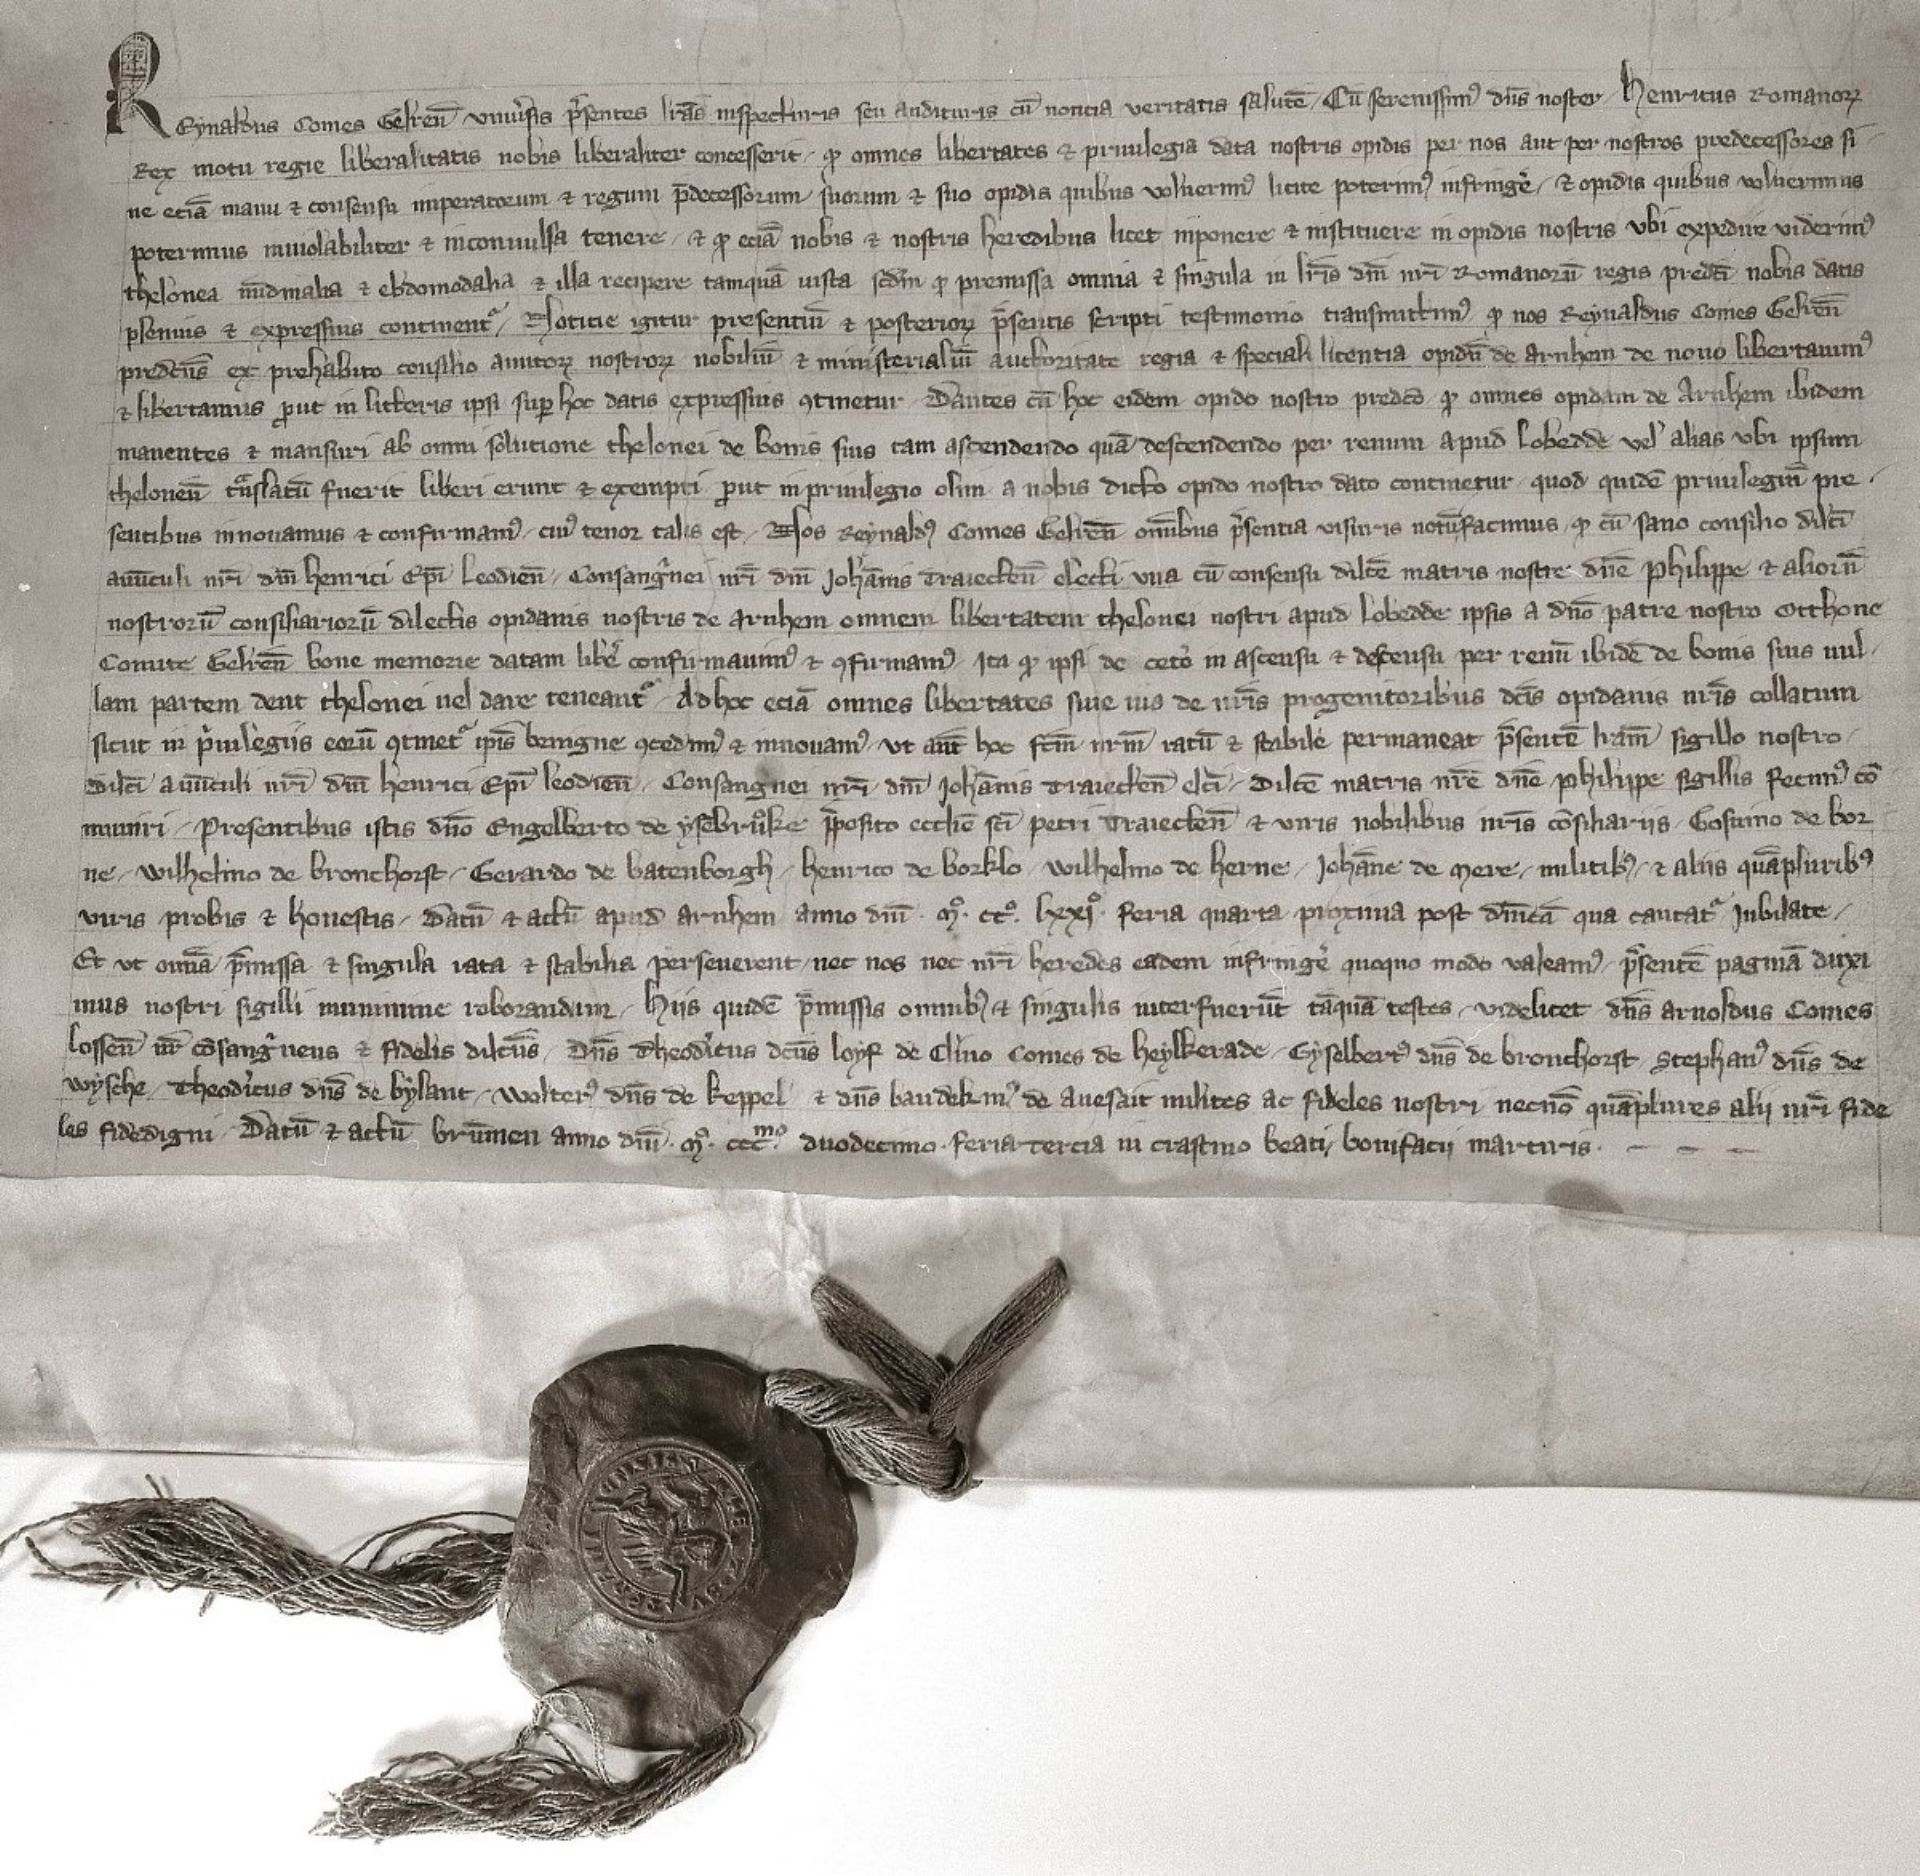 REynaldus Comes Gelreñ vniu'sis p̄sentes lr̄as inspecturis seu audituris cū noticia veritatis salutē / Cū serenissim᷒ dn̄s noster Henricus Romanoꝝ
Rex motu regie liberalitatis nobis liberaliter concesserit / ꝙ omnes libertates ⁊ priuilegia data nostris opidis per nos aut per nostros predecessores si-
ne eciā manu ⁊ consensu imperatorum ⁊ regum p̄decessorum suorum ⁊ suo opidis quibus voluerim᷒ licite poterim᷒ infringe' / ⁊ opidis quibus voluerimus
poterimus inuiolabiliter ⁊ inconuulsa tenere / ⁊ ꝙ eciā nobis ⁊ nostris heredibus licet inponere ⁊ instituere in opidis nostris vbi expedire viderim᷒
thelonea nūdinalia ⁊ ebdomodalia ⁊ illa recipere tamquā iusta scd̄m ꝙ premissa omnia ⁊ singula in lr̄is dn̄i nr̄i Romanorū regis predc̄i nobis datis
plenius ⁊ expressius continent᷑ / Noticie igitur presentiū ⁊ posterioꝝ p̄sentis scripti testimonio transmittim᷒ ꝙ nos Reynaldus Comes Gelreñ
predc̄us ex prehabito consilio amicoꝝ nostroꝝ nobiliū ⁊ ministerialiū auctoritate regia ⁊ speciali licentia opidū de arnhem de nouo libertauim᷒
⁊ libertamus ꝓut in litteris ipsi suꝑ hoc datis expressius ꝯtinetur / Dantes cū hoc eidem opido nostro predc̄o ꝙ omnes opidani de Arnhem ibidem
manentes ⁊ mansuri ab omni solutione thelonei de bonis suis tam ascendendo quā descendendo per renum apud lobedde vel alias vbi ipsum
theloneū trāslatū fuerit liberi erunt ⁊ exempti ꝓut in priuilegio olim a nobis dicto opido nostro dato continetur / quod quidē priuilegiū pre-
sentibus innouamus ⁊ confirmam᷒ / cui᷒ tenor talis est / Nos Reynald᷒ Comes Gelreñ omībus p̄sentia visuris notūfacimus / ꝙ cū sano consilio dilc̄i
auūculi nr̄i dn̄i henrici Ep̄i leodieñ / Consang'nei nr̄i dn̄i Joh̄annis Traiecteñ electi vna cū consensu dilc̄e matris nostre dn̄e Philippe ⁊ aliorū
nostrorū consiliariorū dilectis opidanis nostris de Arnhem omnem libertatem thelonei nostri apud lobedde ipsis a dn̄o patre nostro Otthone
Comite Gelreñ bone memorie datam libe' confirmauim᷒ ⁊ ꝯfirmam᷒ / Ita ꝙ ipsi de cete'o in ascensu ⁊ descensu per renū ibidē de bonis suis nul-
lam partem dent thelonei uel dare teneant᷑ / Ad hoc eciā omnes libertates siue ius de nr̄is progenitoribus dc̄is opidanis nr̄is collatum
sicut in p'uilegijs eorū ꝯtinet᷑ ip̄is benigne ꝯcedim᷒ ⁊ innouam᷒ / vt aūt hoc fc̄m nr̄m ratū ⁊ stabile permaneat p̄sentē lr̄am sigillo nostro /
dilc̄i auūculi nr̄i dn̄i henrici Ep̄i leodieñ / Consang'nei nr̄i dn̄i Joh̄annis Traiecteñ elc̄i / dilc̄e matris nr̄e dn̄e Philippe sigillis fecim᷒ cō-
muniri / Presentibus istis dn̄o Engelberto de ysebruͦke p̄posito eccl̄ie sc̄i petri Traiecteñ ⁊ viris nobilibus nr̄is cōsiliariis / Gosuino de bor-
ne / Wilhelmo de bronchorst / Gerardo de batenborgh / henrico de borklo / Wilhelmo de herne / Joh̄anne de Mere / militib᷒ / ⁊ aliis quāpluribus
viris probis ⁊ honestis / Datū ⁊ actū apud arnhem anno dn̄i · Mͦ · ccͦ · lxxiͦ · feria quarta proxima post dn̄icā qua cantat᷑ Jubilate /
Et vt om̄ia p̄missa ⁊ singula rata ⁊ stabilia perseuerent / nec nos nec nr̄i heredes eadem infringe' quoquo modo valeam᷒ / p̄sentē paginā duxi-
mus nostri sigilli munimine roborandam / Hiis quidē p̄missis omnib᷒ ⁊ singulis interfuerūt tāquā testes / videlicet dn̄s arnoldus Comes
losseñ nr̄ cōsang'neus ⁊ fidelis dilc̄us / Dn̄s Theod'icus dc̄us loyf de Cliuo Comes de heylkerade / Gyselbert᷒ dn̄s de bronchorst / Stephan᷒ dn̄s de
wysche / Theod'icus dn̄s de bylant / Wolter᷒ dn̄s de keppel ⁊ dn̄s baudekin᷒ de auesait milites ac fideles nostri necnō quāplures alij nr̄i fide-
les fidedigni / Datū ⁊ actū brūmen anno dn̄i · Mͦ · cccᵐͦ · duodecimo · feria tercia in crastino beati bonifacij martiris ·